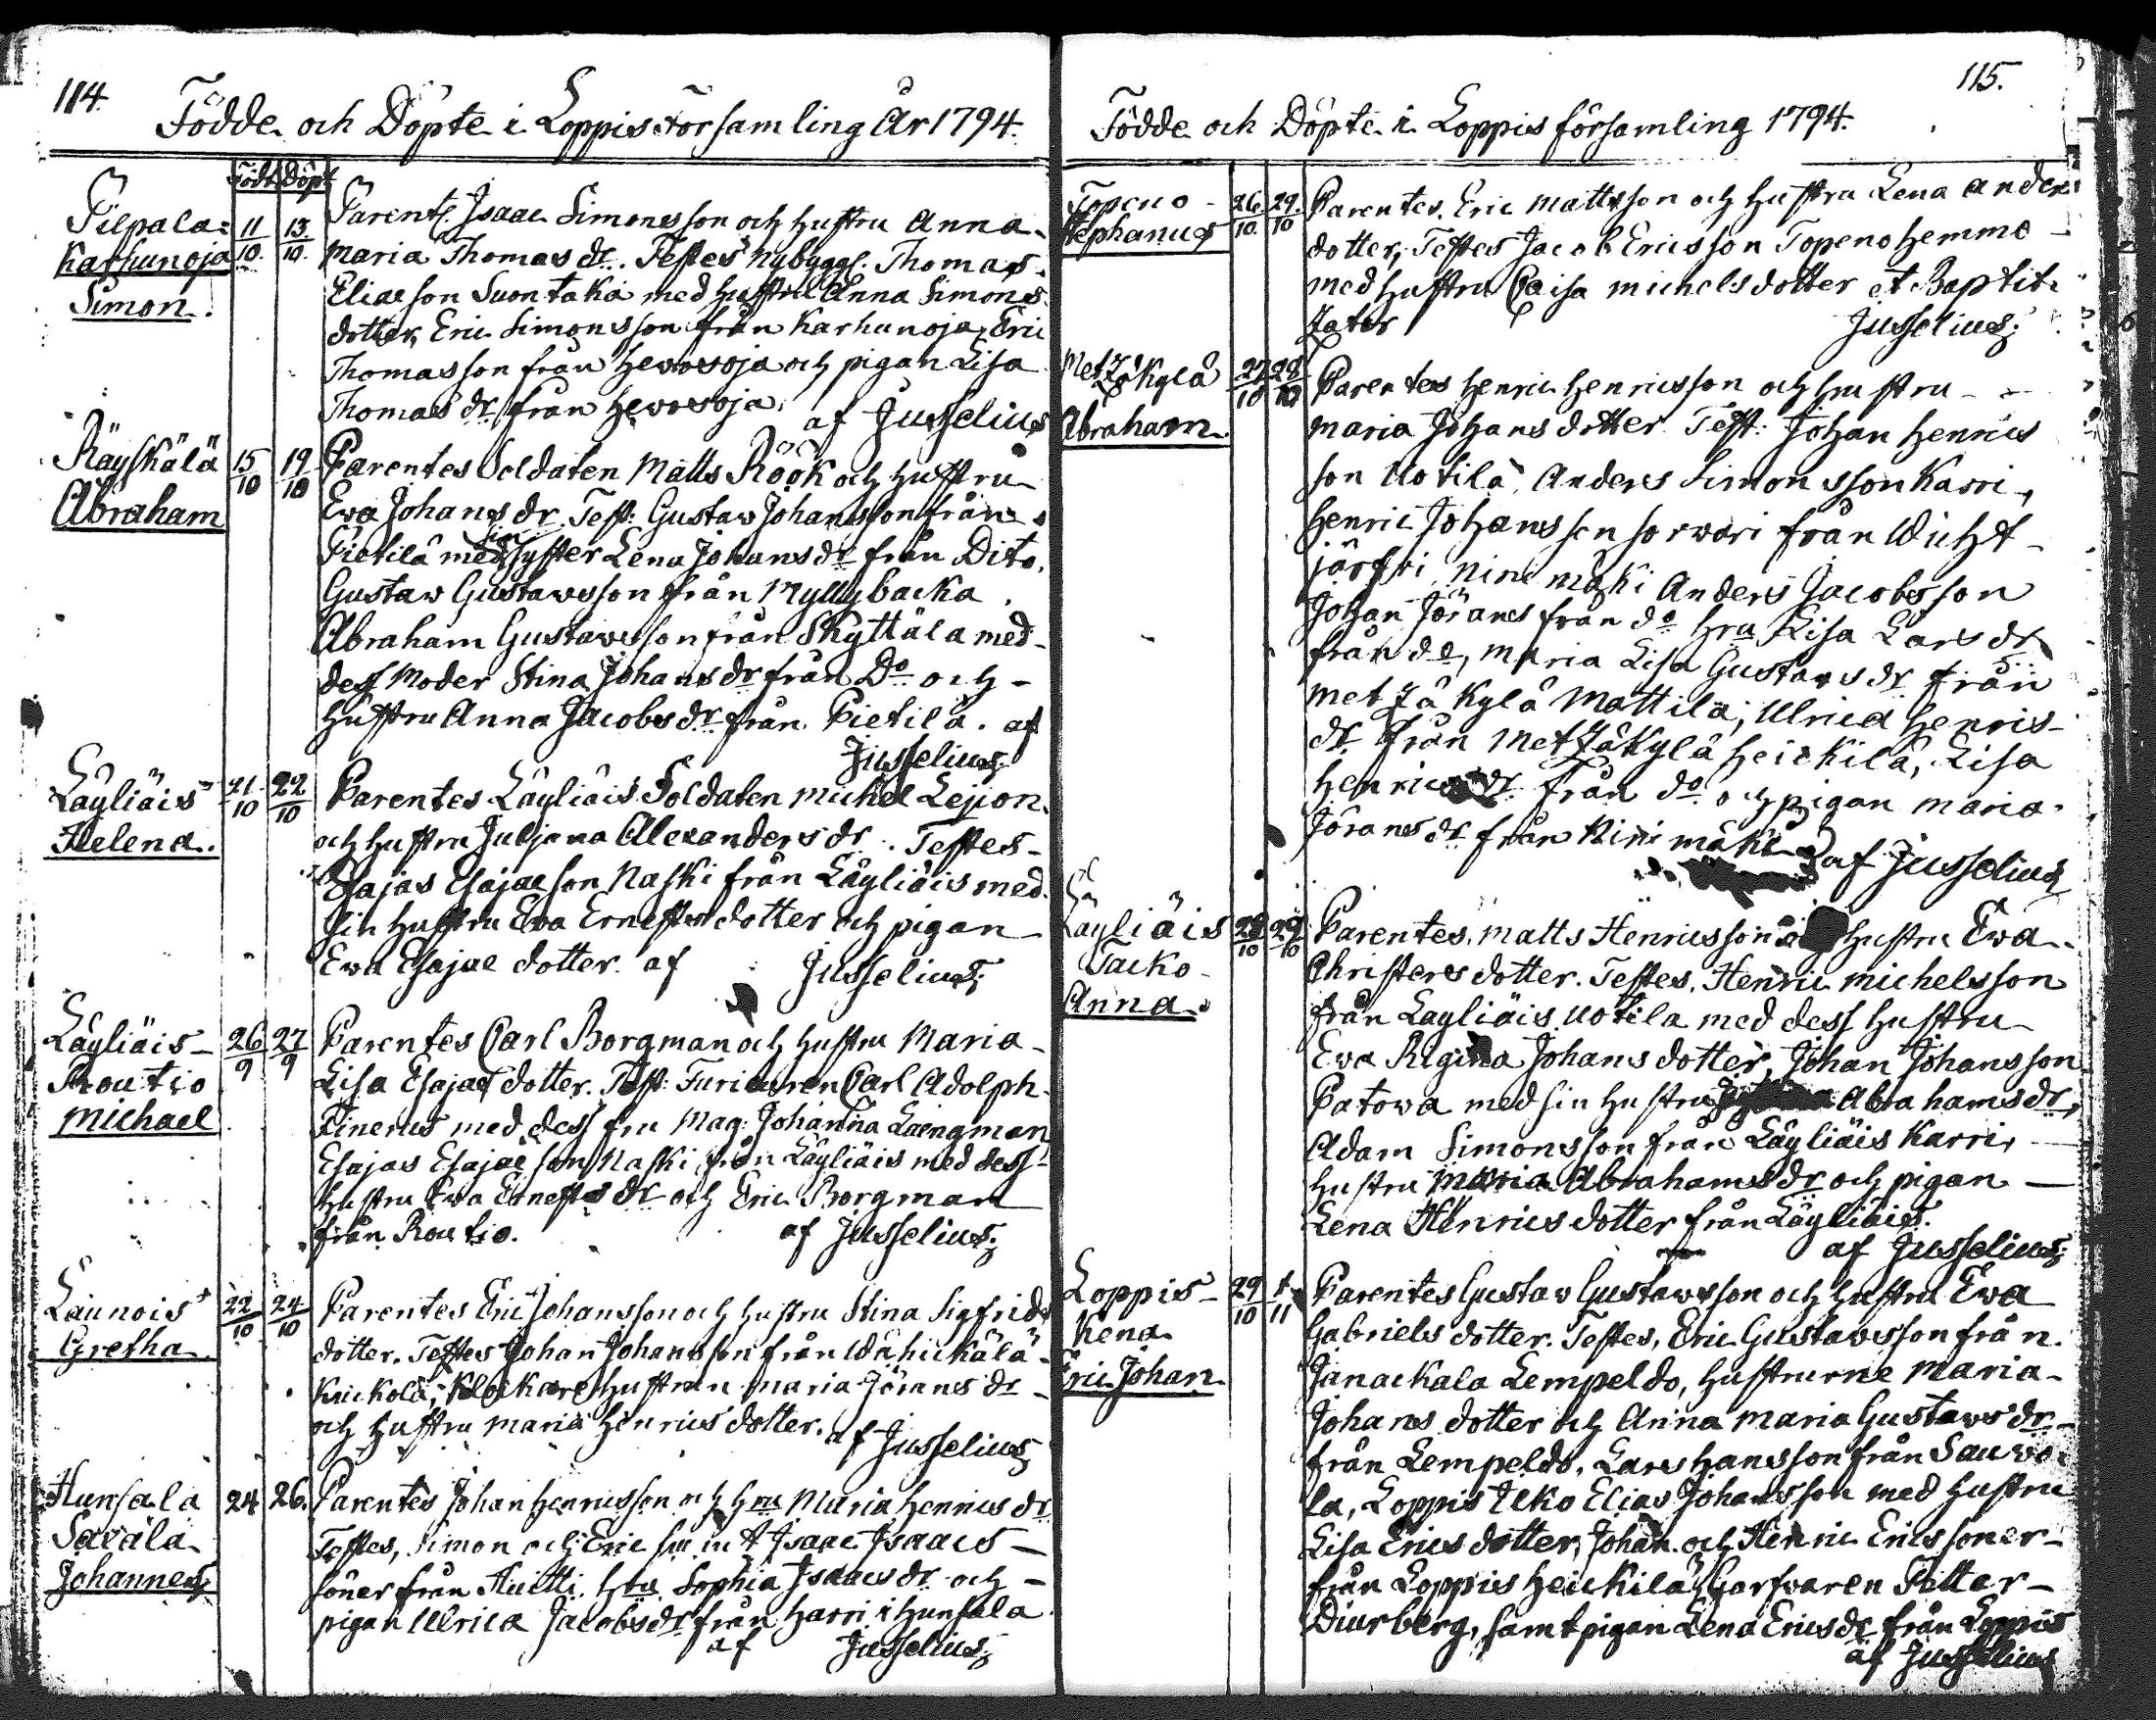 114.
Födde och Döpte i Loppis Församling År 1794.
Födt Döpt
Pilpala=
Karhunoja
Simon.
11/10. 13./10.
Parent. Isaac Simonsson och hustru Anna
Maria Thomas dr. Testes nybygg. Thomas
Eliaeson Suontaka med hustru Anna Simons
dotter, Eric Simonsson från Karhunoja, Eric
Thomasson från Hevosoja och pigan Lisa
Thomas dr från Hevosoja. af Jusselius
Räyskälä
Abraham
15/10 19/10
Parentes Soldaten Matts Röök och hustru
Ewa Johans dr. Test. Gustaw Johansson från
Pietilä med sin syster Lena Johans dr från Dito,
Gustaw Gustawsson från Myllybacka,
Abraham Gustawsson från Skyttälä med
dess Moder Stina Johans dr från Do och
hustru Anna Jacobs dr från Pietilä. af
Jusselius
Läyliäis
Helena.
21/10 22/10
Parentes Läyliäis Soldaten Michel Lejion
och hustru Juljana Alexanders dr. Testes
Esajas Esajaeson Naski från Läyliäis med
sin hustru Ewa Ernestsdotter och pigan
Ewa Esajae dotter. af Jusselius
Läyliäis
Routio
Michael
26/9 27/9
Parentes Carl Borgman och hustru Maria
Lisa Esajae dotter. Test: Furieuren Carl Adolph
Finerus med dess fru Mag: Johanna Laengman
Esajas Esajaeson Naski från Läyliäis med dess
hustru Ewa Ernests dr och Eric Borgman
från Routio. af Jusselius
Launois
Gretha
22/10 24/10
Parentes Eric Johansson och hustru Stina Sigfrids
dotter. Testes Johan Johansson från Wähickälä
Kuickola, Klockare hustrun Maria Jörans dr
och hustru Maria Henrics dotter. af Jusselius
Hunsala
Savala
Johannes
24 26.
Parentes Johan Henricsson och hru Maria Henrics dr
Testes, Simon och Eric samt Isaac Isaacs
söner från Huitti, hru Sophia Isaacs dr och
pigan Ulrica Jacobs dr från Harri i Hunsala
af Jusselius
115.
Födde och Döpte i Loppis församling 1794.
Topeno
Stephanus
26./10. 29./10
Parentes. Eric Mattsson och hustru Lena Anders
dotter, Testes Jacob Ericsson Topeno Hemmo
med hustru Caisa Michelsdotter et Baptit.
zator Jusselius
Metzäkylä
Abraham
27/10 28/10
Parentes Henric Henricsson och hustru
Maria Johans dotter Test: Johan Henrics
son Uotila, Anders Simonsson Karri,
Henric Johansson sorwari från Wicht
järfwi, Nini mäki Anders Jacobsson
Johan Jörans från do hru Lisa Lars dr
från do, Maria Lisa Gustavs dr från
Metzäkylä Mattila, Ulrica Henrics
dr från Metzäkylä Heickilä, Lisa
Henrics dr från do och pigan Maria
Jörans dr från Nini mäki af Jusselius
Läyliäis
Tacko
Anna.
28/10 29/10
Parentes. Matts Henricsson och hustru Ewa
Christersdotter. Testes, Henric Michelsson
från Layliäis Uotila med dess hustru
Ewa Regina Johansdotter, Johan Johansson
Patowa med sin hustru Abrahams dr,
Adam Simonsson från Läyliäis Karri,
hustru Maria Abrahams dr och pigan
Lena Henrics dotter från Läyliäis.
af Jusselius
Loppis
Kena
Eric Johan
29/10 1/11
Parentes Gustav Gustawsson och hustru Ewa
Gabriels dotter. Testes, Eric Gustavsson från
Janackala Lempeldo, hustrurne Maria
Johans dotter och Anna Maria Gustaws dr
från Lempeldo, Lars Hansson från Sauwo
la, Loppis Ucko Elias Johansson med hustru
Lisa Erics dotter, Johan och Henric Ericssoner
från Loppis Heickilä, Garfwaren Petter
Diurberg, samt pigan Lena Erics dr från Loppis
af Jusselius